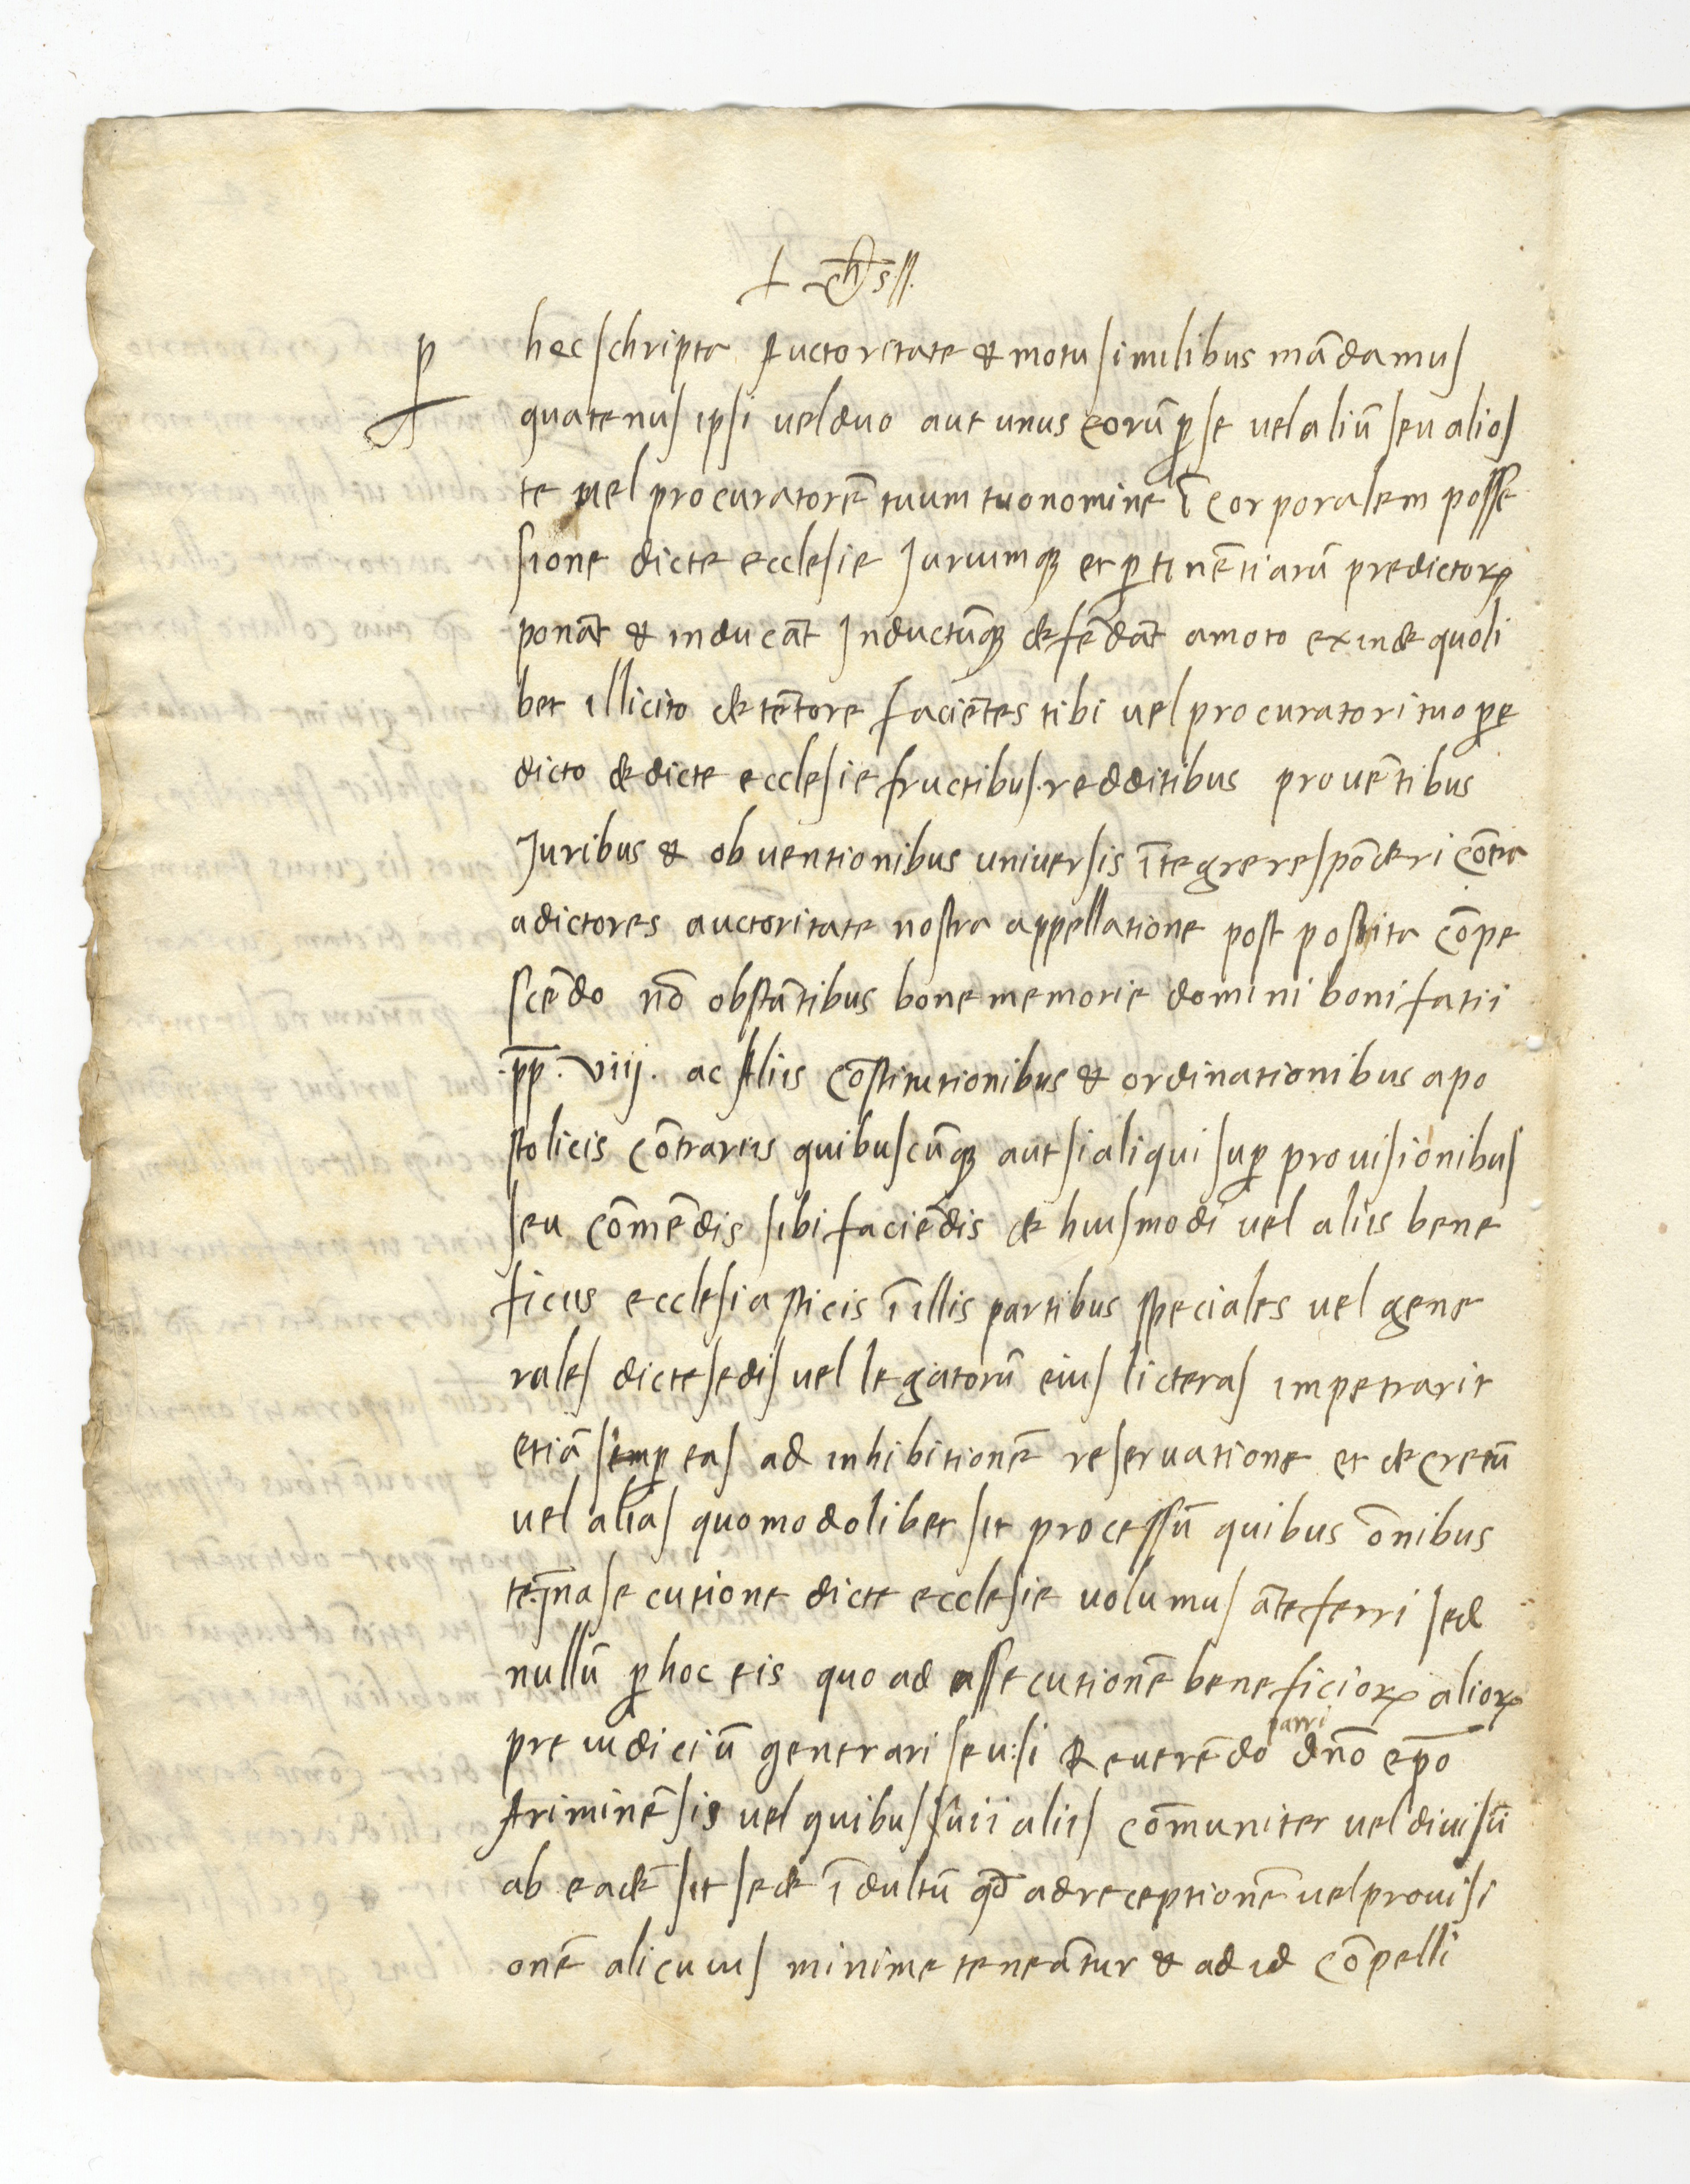 † yhs //.
ꝑ hec schripta Auctoritate & motu similibus mādamus
quatenus ipsi uel duo aut unus eorū ꝑ se uel aliū seu alios
te uel procuratorē tuum tuo nomine ī corporalem posse
sione dicte ecclesie Juriumqꝫ et ꝑtinētiarū predictoꝝ
ponāt & inducāt Inductūqꝫ defēdāt amoto exinde quoli
bet illicito detētore faciētes tibi uel procuratori tuo pre
dicto de dicte ecclesie fructibus. redditibus prouētibus
Juribus & obuentionibus uniuersis ītegre respōderi cōtra
adictores auctoritate nostra appellatione post posita cōpe
scēdo nō obstātibus bone memorie domini bonifatii
.pp̄. viij. ac Aliis cōstitutionibus & ordinationibus apo
stolicis cōtrariis quibuscūqꝫ aut si aliqui suꝑ prouisionibus
seu cōmēdis sibi faciēdis de huiusmodi uel aliis bene
ficiis ecclesiasticis ī illis partibus speciales uel gene
rales dicte sedis uel legatorū eius licteras impetrarit
etiā si ꝑ eas ad inhibitionē reseruatione et decretū
uel alias quomodolibet sit processū quibus ōnibus
te: īnasecutione dicte ecclesie uolumus āteferri sed
nullū ꝑ hoc eis quo ad assecutionē beneficioꝝ alioꝝ
preiudiciū generari seu: si Reuerēdo patri dn̄o ep̄o
Ariminēsis uel quibussuii aliis cōmuniter uel diuisū
ab eadē sit sede īdultū qd̄ ad receptionē uel prouisi
onē alicuius minime teneātur & ad id cōpelli